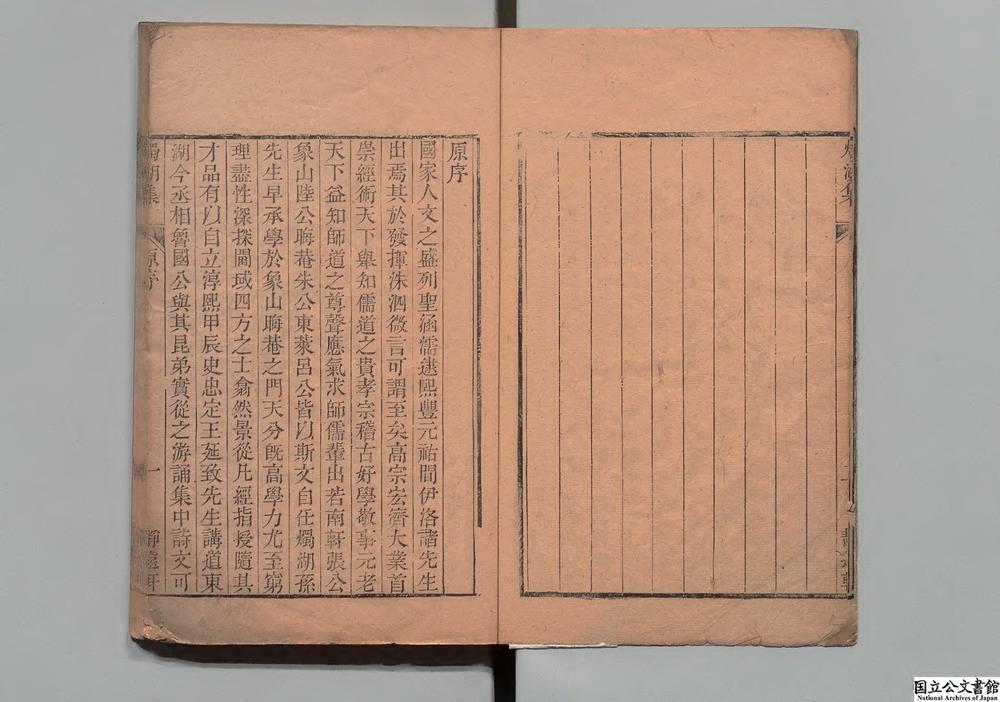 燭湖集
原序
國家人文之盛列聖涵濡逮熙豐元祐間伊洛諸先生
出焉其於發揮洙泗微言可謂至矣高宗宏濟大業首
崇經術天下舉知儒道之貴孝宗稽古好學敬事元老
天下益知師道之尊聲應氣求師儒輩出若南軒張公
象山陸公晦菴朱公東萊呂公皆以斯文自任燭湖孫
先生早承學於象山晦菴之門天分旣高學力尤至窮
理盡性深探閫域四方之士翕然景從凡經指授隨其
才品有以自立淳熙甲辰史忠定王延致先生講道東
湖今丞相魯國公與其昆弟實從之游誦集中詩文可
燭湖集
原序
一
靜遠軒
国立公文書館
National Archives of Japan